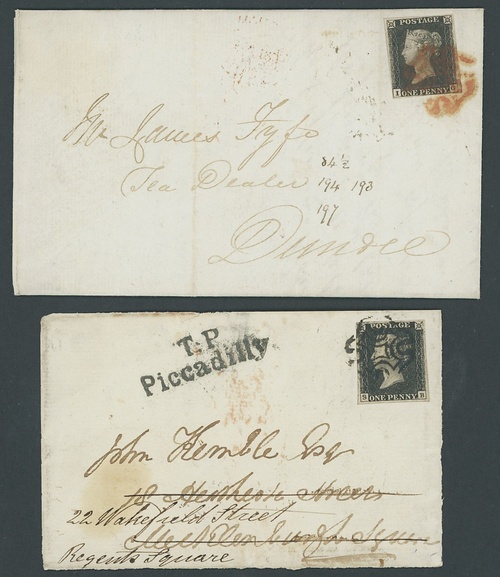 POSTAGE
I G
ONE PENNY
Mr James Fyfe
Tea Dealer
84½
194 193
197
Dundee
T.P
Piccadilly
POSTAGE
S H
ONE PENNY
John Kemble Esq
18
22 Wakefield Street
Regents Square